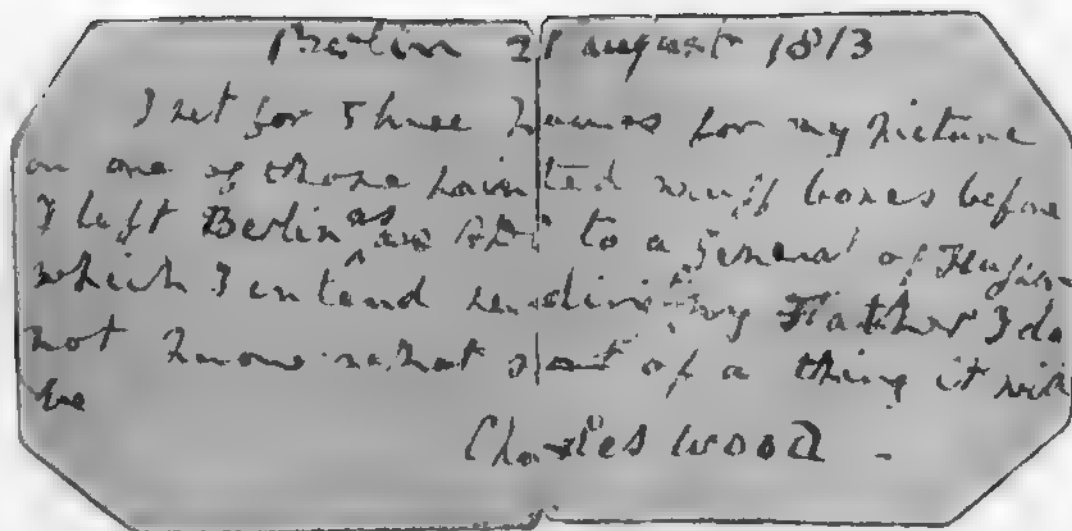 Berlin 21 august 1813
I set for three hours for my picture
on one of those painted snuff boxes before
I left Berlin as to a General of Husar
which I intend sending my Father I do
not know what sort of a thing it will
be
Charles Wood